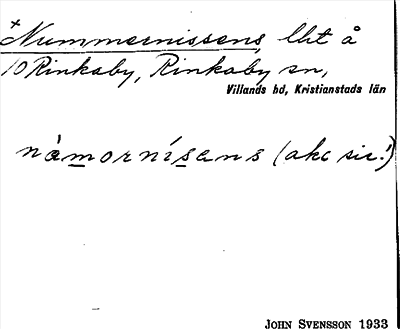 +Nummernissens, lht å
10 Rinkaby, Rinkaby sn,
Villands hd, Kristianstads län
nàmornísens (akc sic!)
JOHN SVENSSON 1933